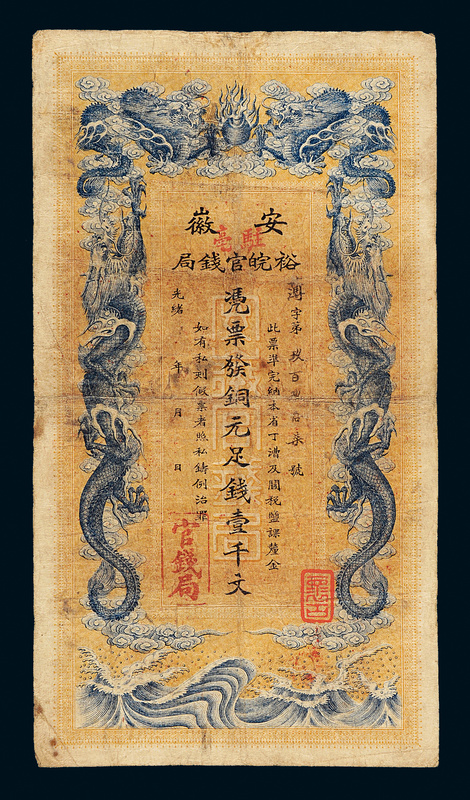 安徽
駐亳
裕皖官錢局
字第玖百
柒號
此票準完納本省丁漕及關稅鹽課釐金
憑票發銅元足錢壹千文
如有私刻假票者照私鑄例治罪
光緒 年 月 日
官錢局